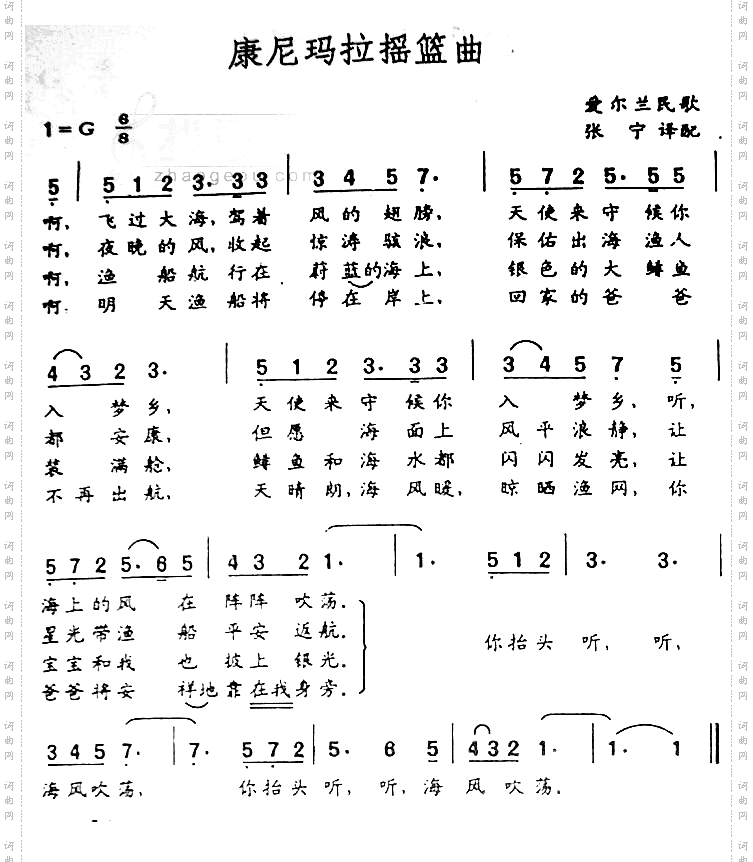 康尼玛拉摇篮曲
爱尔兰民歌
1=G 6/8
张 宁 译配
5 | 5 1 2 3· 3 3 | 3 4 5 7· | 5 7 2 5· 5 5 |
啊，飞过大海，驾着 风的翅膀， 天使来守候你
啊，夜晚的风，收起 惊涛骇浪， 保佑出海渔人
啊，渔 船航行在 蔚蓝的海上， 银色的大鲱鱼
啊，明 天渔船将 停在岸上， 回家的爸 爸
4 3 2 3· | 5 1 2 3· 3 3 | 3 4 5 7 5 |
入 梦乡， 天使来守候你 入 梦乡，听，
都 安康， 但愿 海面上 风平浪静，让
装 满舱， 鲱鱼和海水都 闪闪发亮，让
不再出航， 天晴朗，海风暖， 晾晒渔网，你
5 7 2 5· 6 5 | 4 3 2 1· | 1· 5 1 2 | 3· 3· |
海上的风 在 阵阵 吹荡。
星光带渔 船 平安 返航。
你抬头 听， 听，
宝宝和我 也 披上 银光。
爸爸将安 祥地靠在我身旁。
3 4 5 7· | 7· 5 7 2 | 5· 6 5 | 4 3 2 2 1· | 1· 1 ‖
海风吹荡， 你抬头听， 听，海 风 吹荡。
zhaogepu.com
词曲网